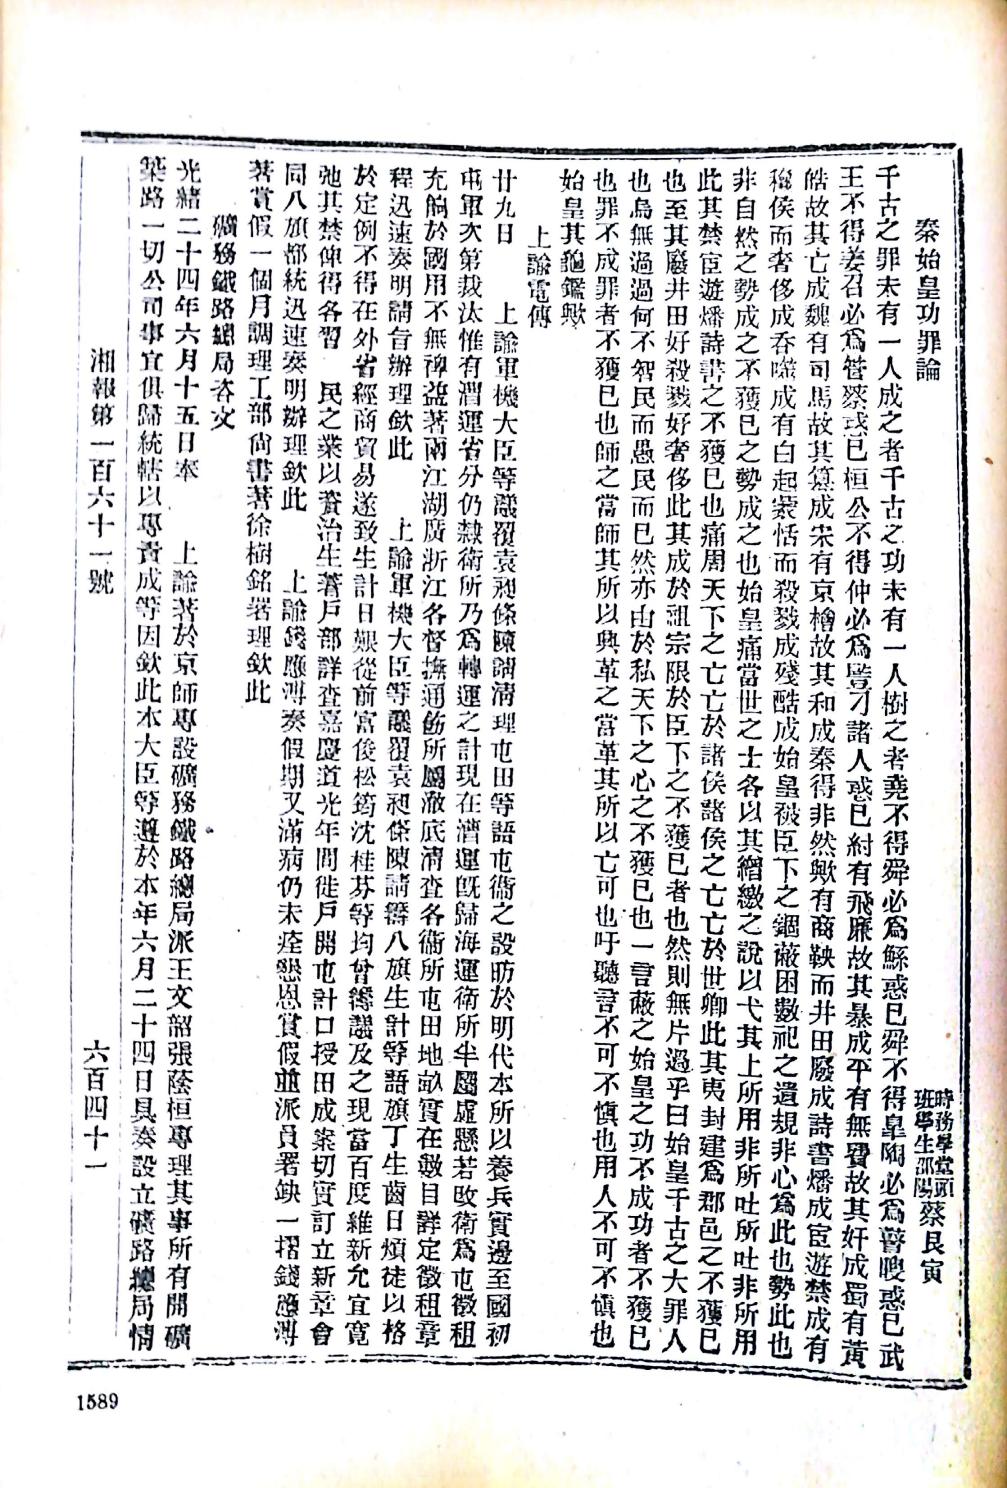 秦始皇功罪論
時務學堂頭
班學生邵陽
蔡艮寅
千古之罪未有一人成之者千古之功未有一人樹之者堯不得舜必爲鯀惑已舜不得皐陶必爲瞽瞍惑已武
王不得姜召必爲管蔡惑已桓公不得仲必爲豎刁諸人惑已紂有飛廉故其暴成平有無費故其奸成蜀有黃
皓故其亡成魏有司馬故其篡成宋有京檜故其和成秦得非然歟有商鞅而井田廢成詩書燔成宦遊禁成有
穰侯而奢侈成吞噬成有白起裴恬而殺戮成殘酷成始皇被臣下之錮蔽困數祀之遺規非心爲此也勢此也
非自然之勢成之不獲已之勢成之也始皇痛當世之士各以其繒繳之說以弋其上所用非所吐所吐非所用
此其禁宦遊燔詩書之不獲已也痛周天下之亡亡於諸侯諸侯之亡亡於世卿此其夷封建爲郡邑之不獲已
也至其廢井田好殺戮好奢侈此其成於祖宗限於臣下之不獲已者也然則無片過乎曰始皇千古之大罪人
也烏無過過何不智民而愚民而已然亦由於私天下之心之不獲已也一言蔽之始皇之功不成功者不獲已
也罪不成罪者不獲已也師之當師其所以興革之當革其所以亡可也吁聽言不可不愼也用人不可不愼也
始皇其龜鑑歟
上諭電傳
廿九日　上諭軍機大臣等議覆袁昶條陳請清理屯田等語屯衞之設昉於明代本所以養兵實邊至國初
屯軍次第裁汰惟有漕運省分仍隸衛所乃爲轉運之計現在漕運旣歸海運衛所半屬虛懸若改衛爲屯徵租
充餉於國用不無裨益著兩江湖廣浙江各督撫通飭所屬澈底清查各衞所屯田地畝實在數目詳定徵租章
程迅速奏明請旨辦理欽此　上諭軍機大臣等議覆袁昶條陳請籌八旗生計等語旗丁生齒日煩徒以格
於定例不得在外省經商貿易遂致生計日艱從前富俊松筠沈桂芬等均曾籌議及之現當百度維新允宜寬
弛其禁俾得各習　民之業以資治生著戶部詳查嘉慶道光年間徙戶開屯計口授田成案切實訂立新章會
同八旗都統迅速奏明辦理欽此　上諭錢應溥奏假期又滿病仍未痊懇恩賞假並派員署缺一摺錢應溥
著賞假一個月調理工部尙書著徐樹銘署理欽此
礦務鐵路總局咨文
光緒二十四年六月十五日奉　上諭著於京師專設礦務鐵路總局派王文韶張蔭桓專理其事所有開礦
築路一切公司事宜俱歸統轄以專責成等因欽此本大臣等遵於本年六月二十四日具奏設立礦路總局情
湘報第一百六十一號
六百四十一
1589